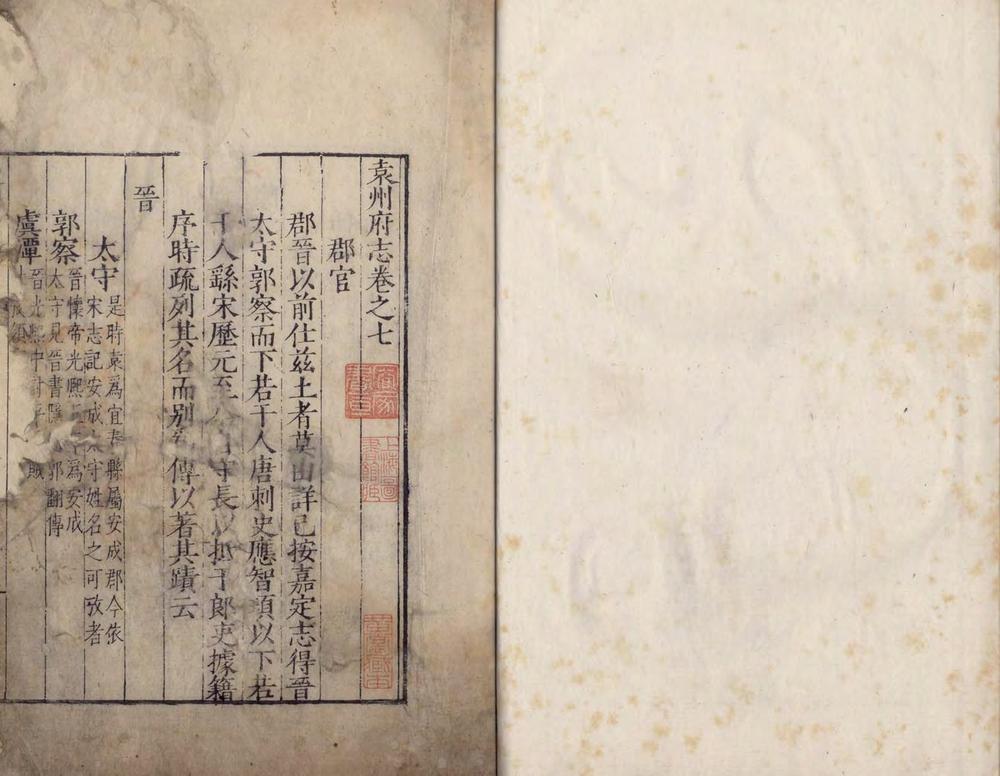 袁州府志卷之七
郡官
郡晉以前仕茲土者莫由詳已按嘉定志得晉
太守郭察而下若干人唐刺史應智頊以下若
干人繇宋歷元至 守長以抵于郎吏據籍
序時疏列其名而别 傳以著其蹟云
晉
太守
是時袁爲宜春縣屬安成郡今依
宋志記安成太守姓名之可攷者
郭察
晉懷帝光熙 爲安成
太守見晉書隱 郭翻傳
虞潭
晉光熙中討
上海圖書館藏